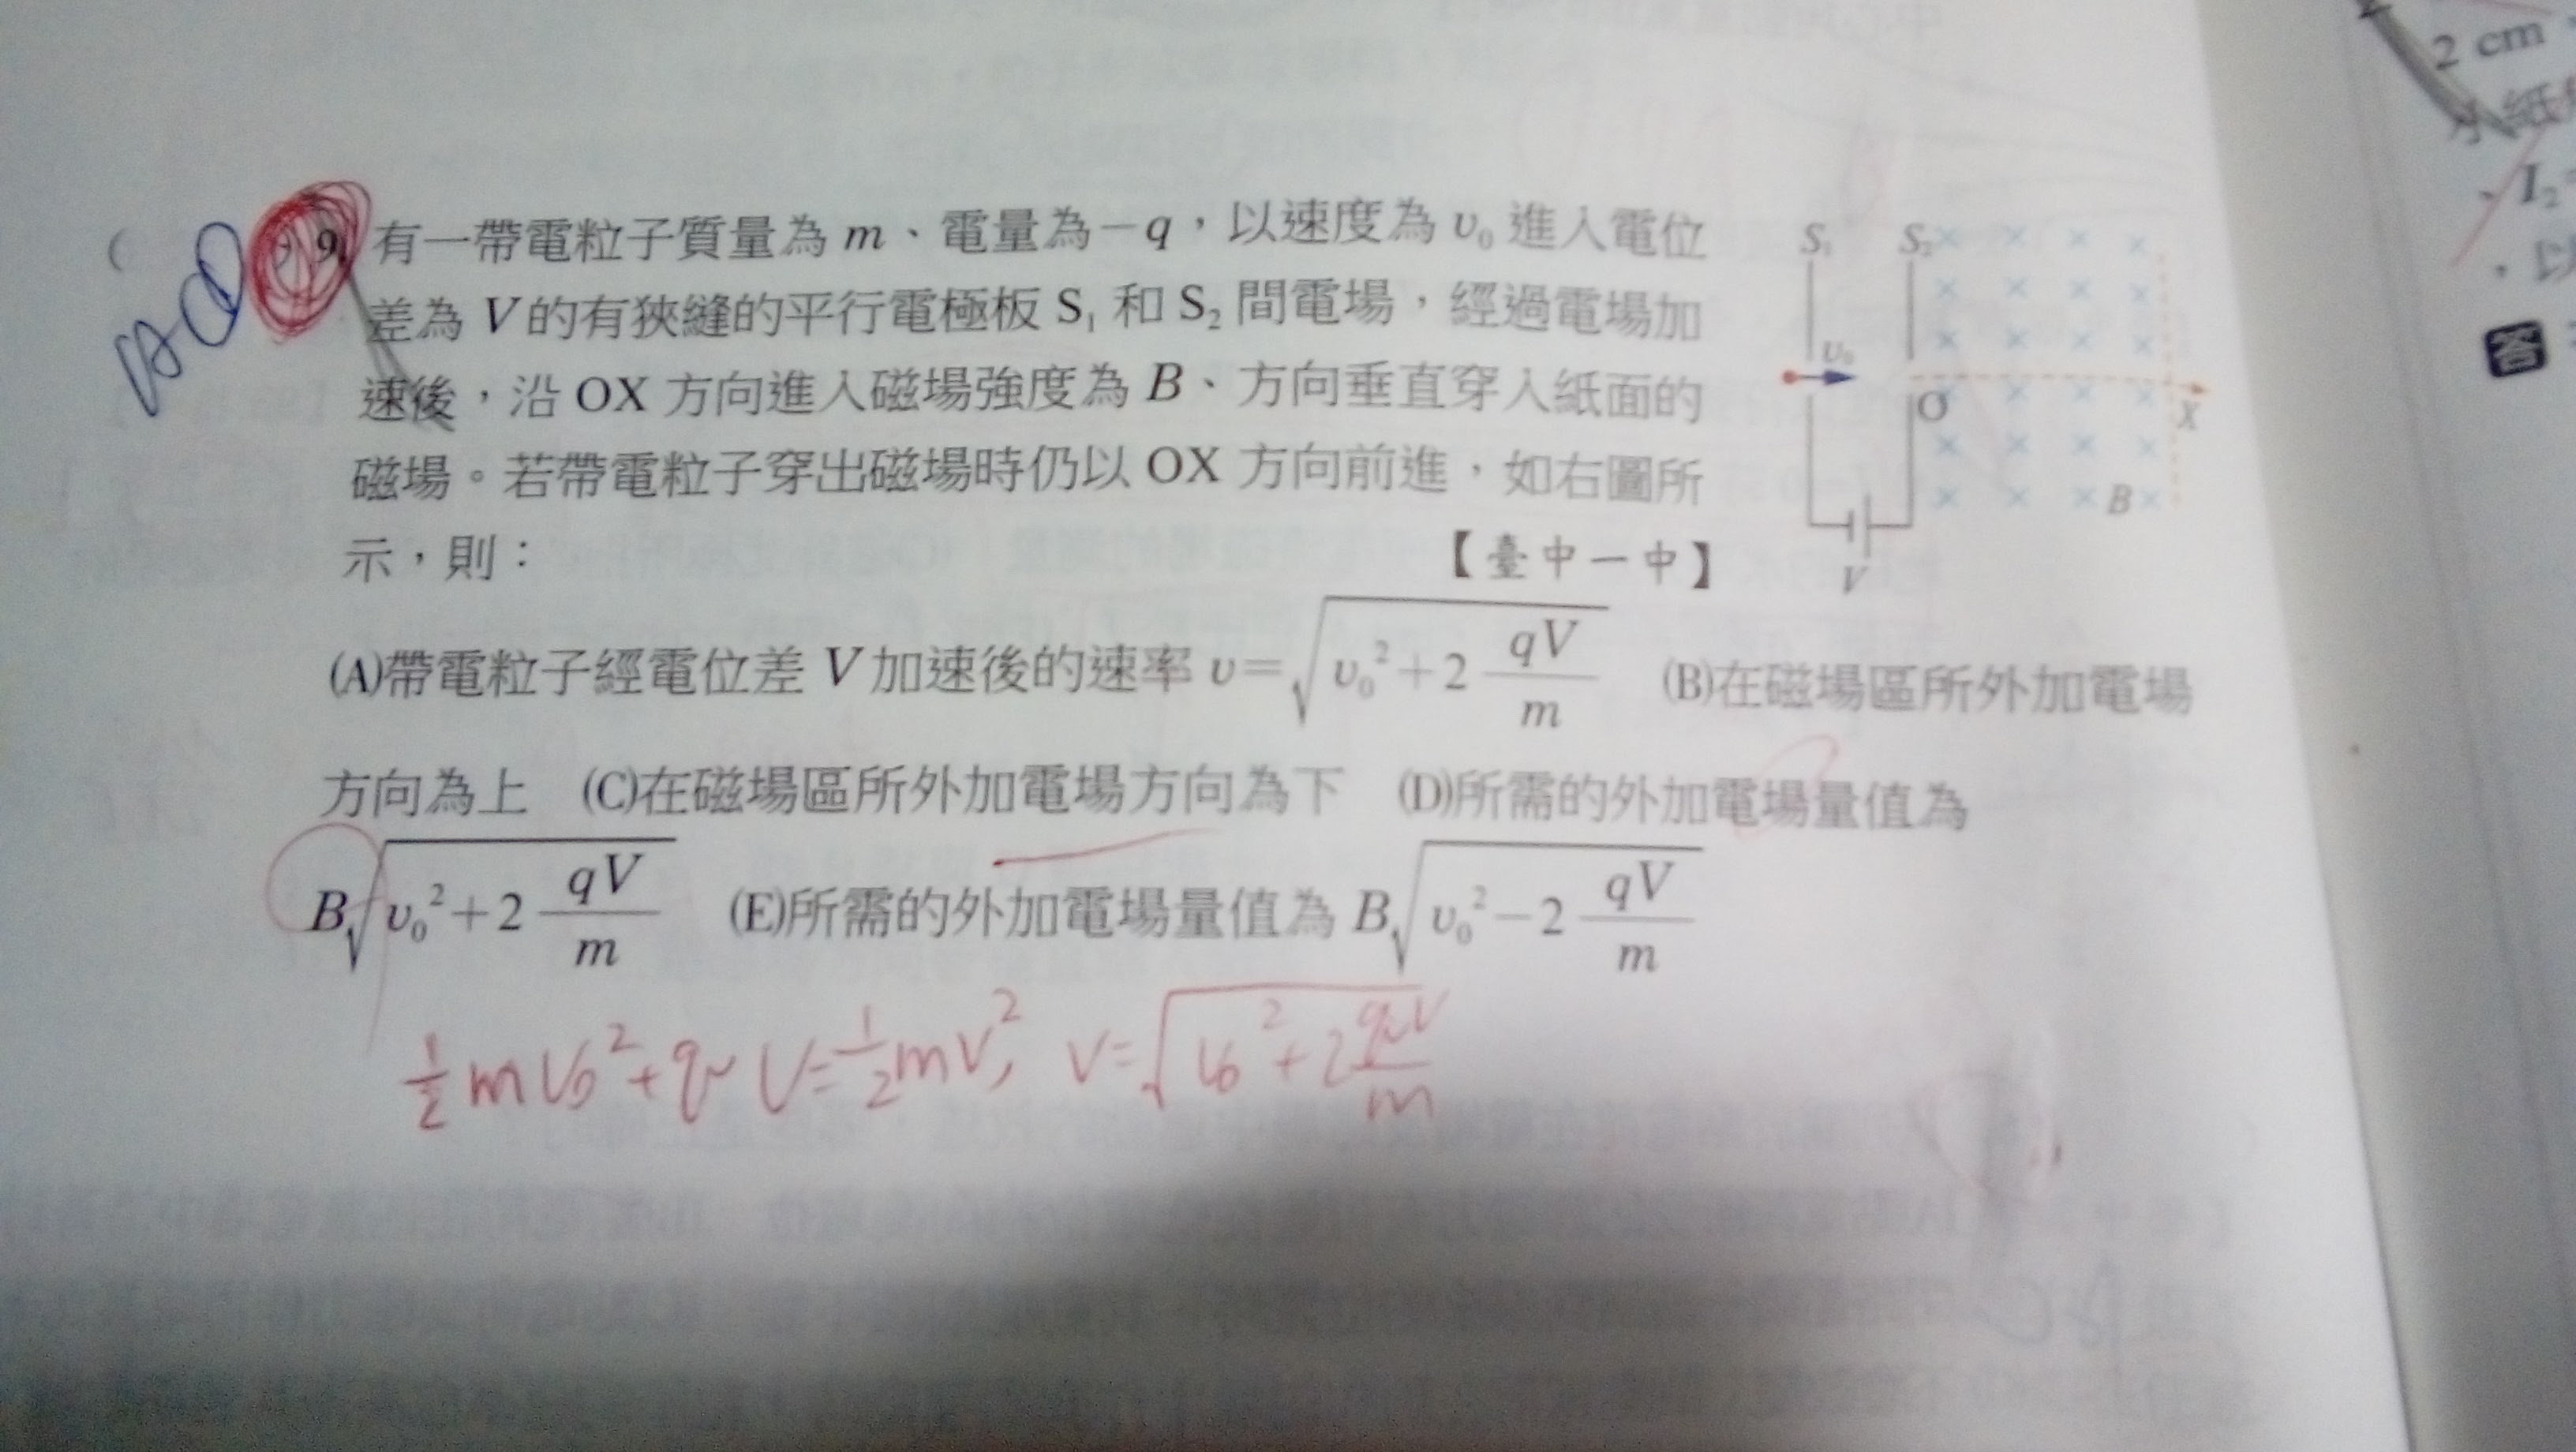 9. 有一帶電粒子質量為 m、電量為－q，以速度為 υ₀ 進入電位
差為 V 的有狹縫的平行電極板 S₁ 和 S₂ 間電場，經過電場加
速後，沿 OX 方向進入磁場強度為 B、方向垂直穿入紙面的
磁場。若帶電粒子穿出磁場時仍以 OX 方向前進，如右圖所
示，則：　【臺中一中】
S₁ S₂
υ₀
O X
B
V
(A)帶電粒子經電位差 V 加速後的速率 υ＝√(υ₀²＋2 qV/m)　(B)在磁場區所外加電場
方向為上　(C)在磁場區所外加電場方向為下　(D)所需的外加電場量值為
B√(υ₀²＋2 qV/m)　(E)所需的外加電場量值為 B√(υ₀²－2 qV/m)
½mV₀²+qV=½mV², V=√(V₀²+2qV/m)
2 cm
小紙
、I₂
，以
答